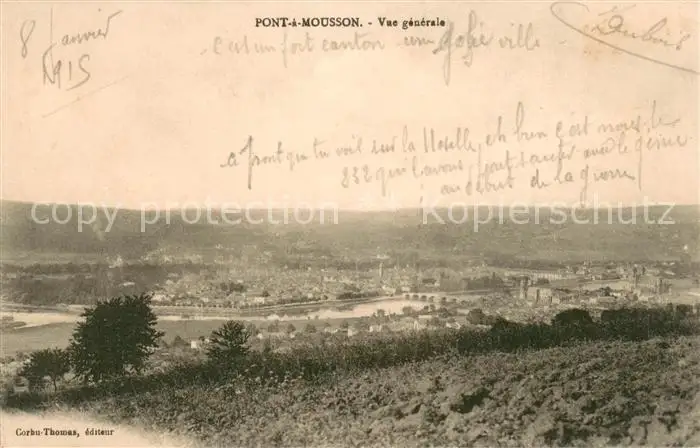 PONT-à-MOUSSON. - Vue générale
8 Janvier
1915
Dubois
c'est un fort canton une jolie ville
a pront que tu voil sur la Moselle, eh bien c'est nous, le
832 qui l'avons sauter avec le génie
au début de la guerre
copy protection copy protection
Kopierschutz Kopierschutz
Corbu-Thomas, éditeur